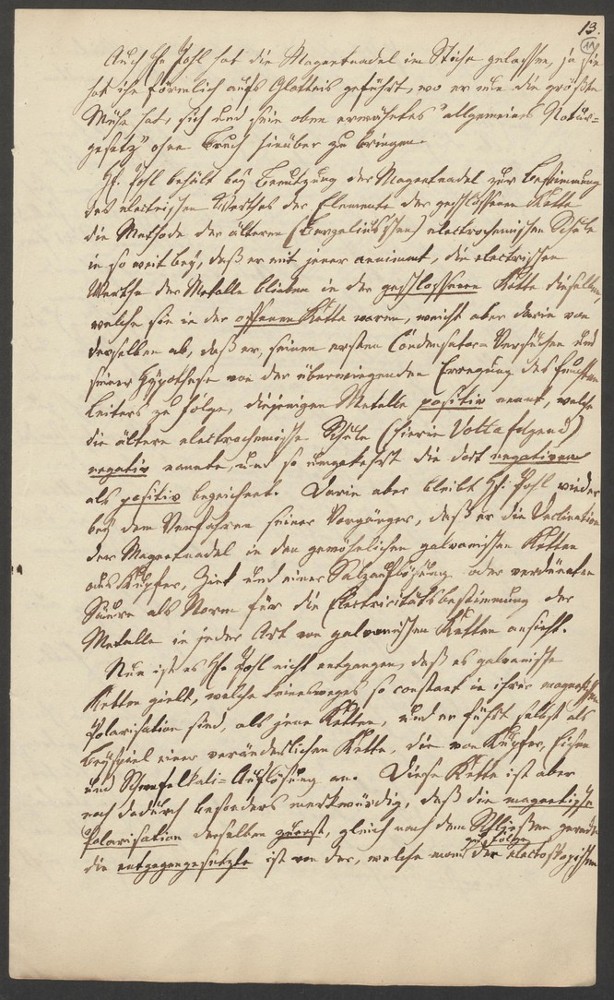 13.
19
Auch H. Pohl hat die Magnetnadel im Stiche gelassen, ja sie
hat ihn förmlich aufs Glatteis geführt, wo er nun die größte
Mühe hat, sich und sein oben erwähntes "allgemeines Natur-
gesetz" ohne Bruch hinüber zu bringen.
H. Pohl behält bey Benutzung der Magnetnadel zur Bestimmung
des electrischen Werthes der Elemente der geschlossenen Kette
die Methode der älteren (Berzeliusschen) electrochemischen Schule
in so weit bey, daß er mit jener annimmt, die electrischen
Werthe der Metalle blieben in der geschlossenen Kette dieselben,
welche sie in der offenen Kette waren, weicht aber darin von
derselben ab, daß er, seinen ersten Condensator Versuchen und
seiner Hypothese von der überwiegenden Erregung des feuchten
Leiters zu folge, diejenigen Metalle positiv nennt, welche
die ältere electrochemische Schule (hierin Volta folgend)
negativ nannte, und so umgekehrt die dort negativen
als positiv bezeichnet. Darin aber bleibt H. Pohl wieder
bey dem Verfahren seiner Vorgänger, daß er die Declination
der Magnetnadel in den gewöhnlichen galvanischen Ketten
aus Kupfer, Zink und einer Salzauflösung oder verdünnten
Säure als Norm für die Electricitätsbestimmung der
Metalle in jeder Art von galvanischen Ketten ansieht.
Nun ist es H. Pohl nicht entgangen, daß es galvanische
Ketten giebt, welche keinesweges so constant in ihrer magnetischen
Polarisation sind, als jene Ketten, und er führt selbst als
Beyspiel einer veränderlichen Kette, die von Kupfer, Eisen
und Schwefelkali-Auflösung an. Diese Kette ist aber
noch dadurch besonders merkwürdig, daß die magnetische
Polarisation derselben zuerst, gleich nach dem Schließen gerade
zu Folge
die entgegengesetzte ist von der, welche man der electroskopischen